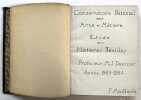 Conservatoire National
des
Arts et Métiers
Etude
des
Matières Textiles
Professeur M. J.
Année 1903-1904